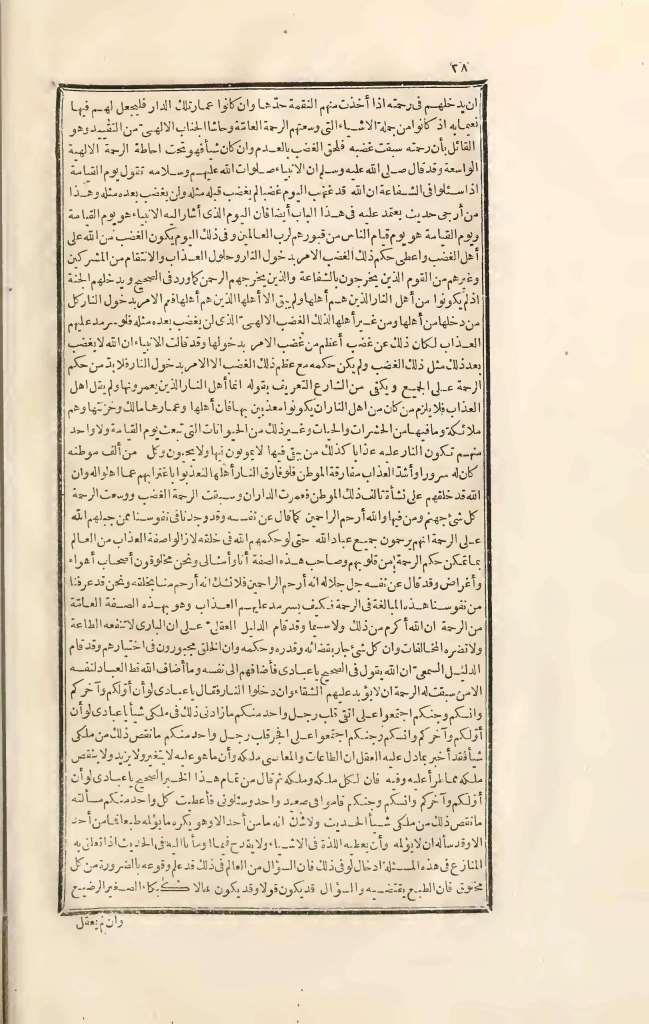 ٣٨
ان يدخلهم فى رحمته اذا أخذت منهم النقمة حدّها وان كانوا عمار تلك الدار فليجعل لهم فيها
نعيما به اذ كانوا من جملة الاشياء التى وسعتهم الرحمة العامّة وحاشا الجناب الالهىّ من التقييد وهو
القائل بأن رحمته سبقت غضبه فلحق الغضب بالعدم وان كان شيأ فهو تحت احاطة الرحمة الالهية
الواسعة وقد قال صلى الله عليه وسلم ان الانبياء صلوات الله عليهم وسلامه تقول يوم القيامة
اذا سئلوا فى الشفاعة ان الله قد غضب اليوم غضبا لم يغضب قبله مثله ولن يغضب بعده مثله وهذا
من أرجى حديث يعتمد عليه فى هذا الباب أيضا فان اليوم الذى أشار اليه الانبياء هو يوم القيامة
ويوم القيامة هو يوم قيام الناس من قبورهم لرب العالمين وفى ذلك اليوم يكون الغضب من الله على
أهل الغضب واعطى حكم ذلك الغضب الامر بدخول النار وحلول العذاب والانتقام من المشركين
وغيرهم من القوم الذين يخرجون بالشفاعة والذين يخرجهم الرحمن كما ورد فى الصحيح ويدخلهم الجنة
اذ لم يكونوا من أهل النار الذين هم أهلها ولم يبق الا أهلها الذين هم أهلها فم الامر بدخول النار كل
من دخلها من أهلها ومن غير أهلها لذلك الغضب الالهىّ الذى لن يغضب بعده مثله فلو سرمد عليهم
العذاب لكان ذلك عن غضب أعظم من غضب الامر بدخولها وقد قالت الانبياء ان الله لا يغضب
بعد ذلك مثل ذلك الغضب ولم يكن حكمه مع عظم ذلك الغضب الا الامر بدخول النار فلا بدّ من حكم
الرحمة على الجميع ويكفى من الشارع التعريف بقوله انما أهل النار الذين يعمرونها ولم يقل اهل
العذاب فلا يلزم من كان من اهل النار ان يكونوا معذبين بها فان أهلها وعمارها مالك وخزنتها وهم
ملائكة وما فيها من الحشرات والحيات وغير ذلك من الحيوانات التى تبعث يوم القيامة ولا واحد
منهم تكون النار عليه عذابا كذلك من يبقى فيها لا يموتون فيها ولا يحيون وكل من ألف موطنه
كان له سرورا وأشدّ العذاب مفارقة الموطن فلو فارق النار أهلها لتعذبوا باغترابهم عما اهلوا له وان
الله قد خلقهم على نشأة تألف ذلك الموطن فعمرت الداران وسبقت الرحمة الغضب ووسعت الرحمة
كل شئ جهنم ومن فيها والله أرحم الراحمين كما قال عن نفسه وقد وجدنا فى نفوسنا ممن جبلهم الله
على الرحمة انهم يرحمون جميع عباد الله حتى لو حكمهم الله فى خلقه لازالوا صفة العذاب من العالم
بما تمكن حكم الرحمة من قلوبهم وصاحب هذه الصفة أنا وأمثالى ونحن مخلوقون أصحاب أهواء
وأغراض وقد قال عن نفسه جل جلاله انه أرحم الراحمين فلا نشك انه أرحم منا بخلقه ونحن قد عرفنا
من نفوسنا هذه المبالغة فى الرحمة فكيف يسرمد عليهم العذاب وهو بهذه الصفة العامّة
من الرحمة ان الله أكرم من ذلك ولا سيما وقد قام الدليل العقلىّ على ان البارى لا تنفعه الطاعة
ولا تضره المخالفات وان كل شئ جار بقضائه وقدره وحكمه وان الخلق مجبورون فى اختيارهم وقد قام
الدليل السمعىّ ان الله يقول فى الصحيح يا عبادى فأضافهم الى نفسه وما أضاف الله قط العباد لنفسه
الا من سبقت له الرحمة ان لا يؤبد عليهم الشقاء وان دخلوا النار فقال يا عبادى لو أن أوّلكم وآخركم
وانسكم وجنكم اجتمعوا على أتقى قلب رجل واحد منكم ما زاد فى ذلك فى ملكى شيأ يا عبادى لو أن
أوّلكم وآخركم وانسكم وجنكم اجتمعوا على أفجر قلب رجل واحد منكم ما نقص ذلك من ملكى
شيأ فقد أخبر بما دل عليه العقل ان الطاعات والمعاصى ملكه وأن ما هو عليه لا يتغير ولا يزيد ولا ينقص
ملكه مما طرأ عليه وفيه فان لكل ملكه وملكه ثم قال من تمام هذا الخبر الصحيح يا عبادى لو أن
أوّلكم وآخركم وانسكم وجنكم قاموا فى صعيد واحد وسئلونى فأعطيت كل واحد منكم مسألته
ما نقص ذلك من ملكى شيأ الحديث ولا شك انه ما من أحد الا وهو يكره ما يؤلمه طبعا فما من أحد
الا وقد سأله ان لا يؤلمه وأن يعطيه اللذة فى الاشياء ولا يقدح فيما أومأنا اليه فى الحديث اذا تعلق به
المنازع فى هذه المسئلة ادخال لو فى ذلك فان السؤال من العالم فى ذلك قد علم وقوعه بالضرورة من كل
مخلوق فان الطبع يقتضيه والسؤال قد يكون قولا وقد يكون حالا كبكاء الصغير الرضيع
وان لم يعقل